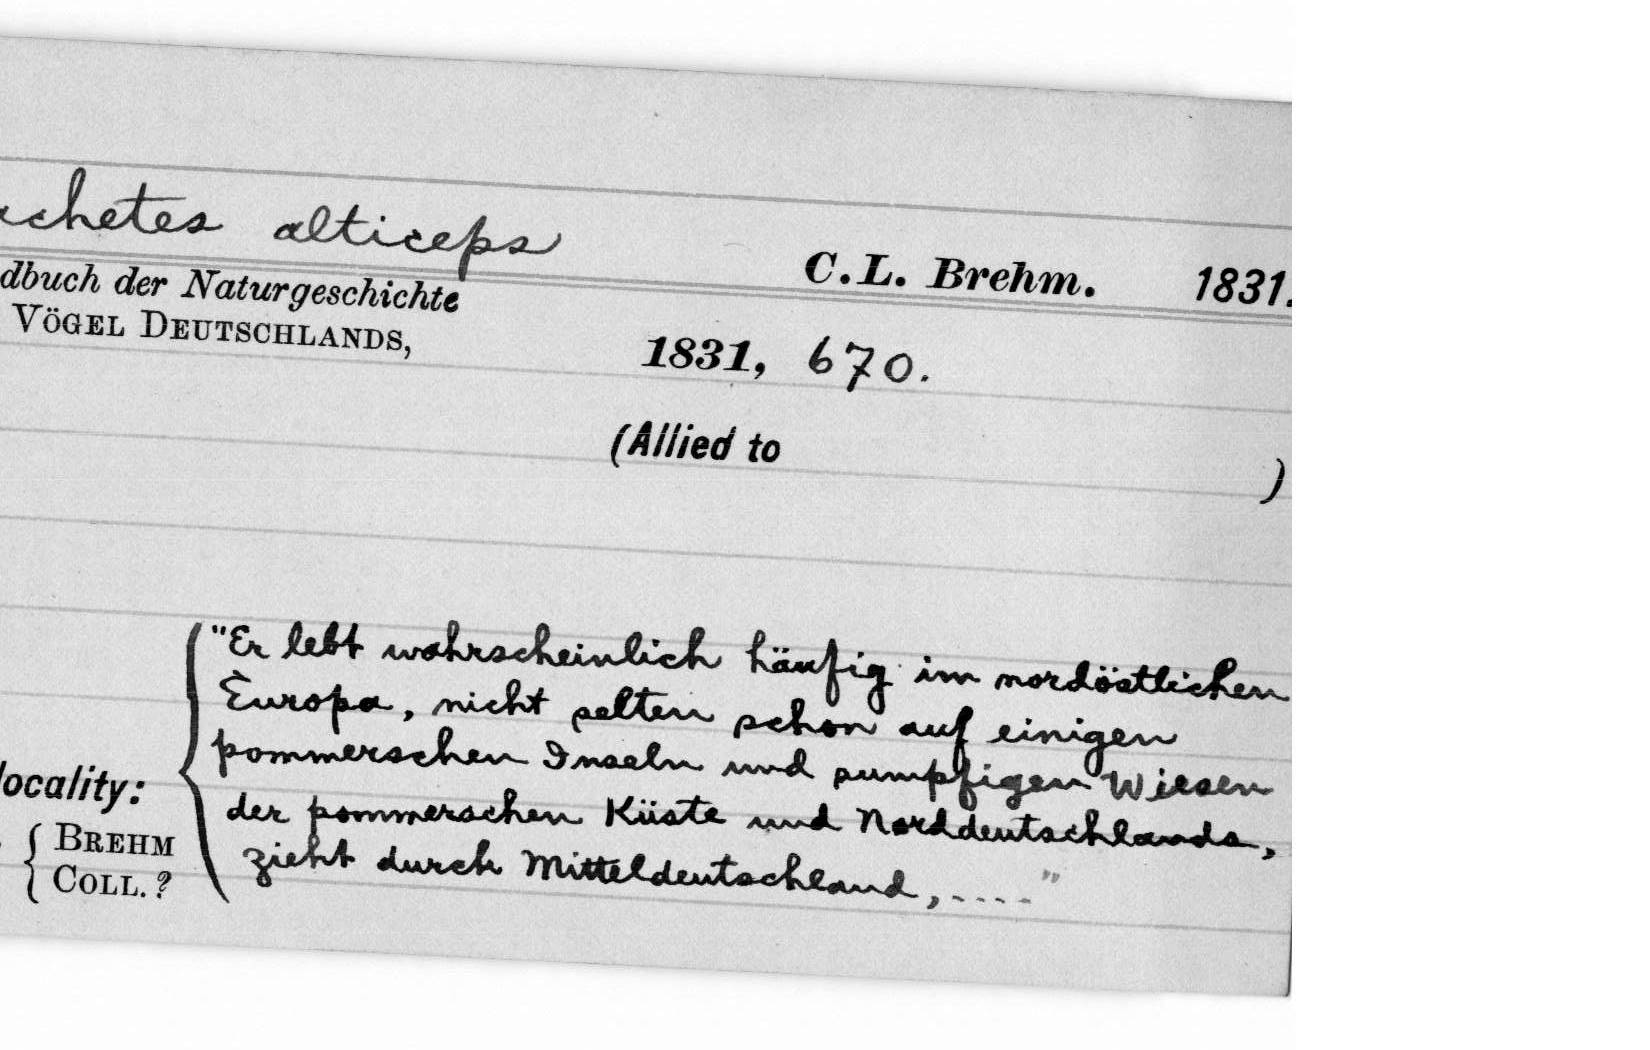 achetes alticeps
C.L. Brehm. 1831.
dbuch der Naturgeschichte
VÖGEL DEUTSCHLANDS,
1831, 670.
(Allied to )
"Er lebt wahrscheinlich häufig im nordöstlichen
Europa, nicht selten schon auf einigen
pommerschen Inseln und sumpfigen Wiesen
locality:
der pommerschen Küste und Norddeutschlands,
BREHM
zieht durch Mitteldeutschland, .... "
COLL. ?